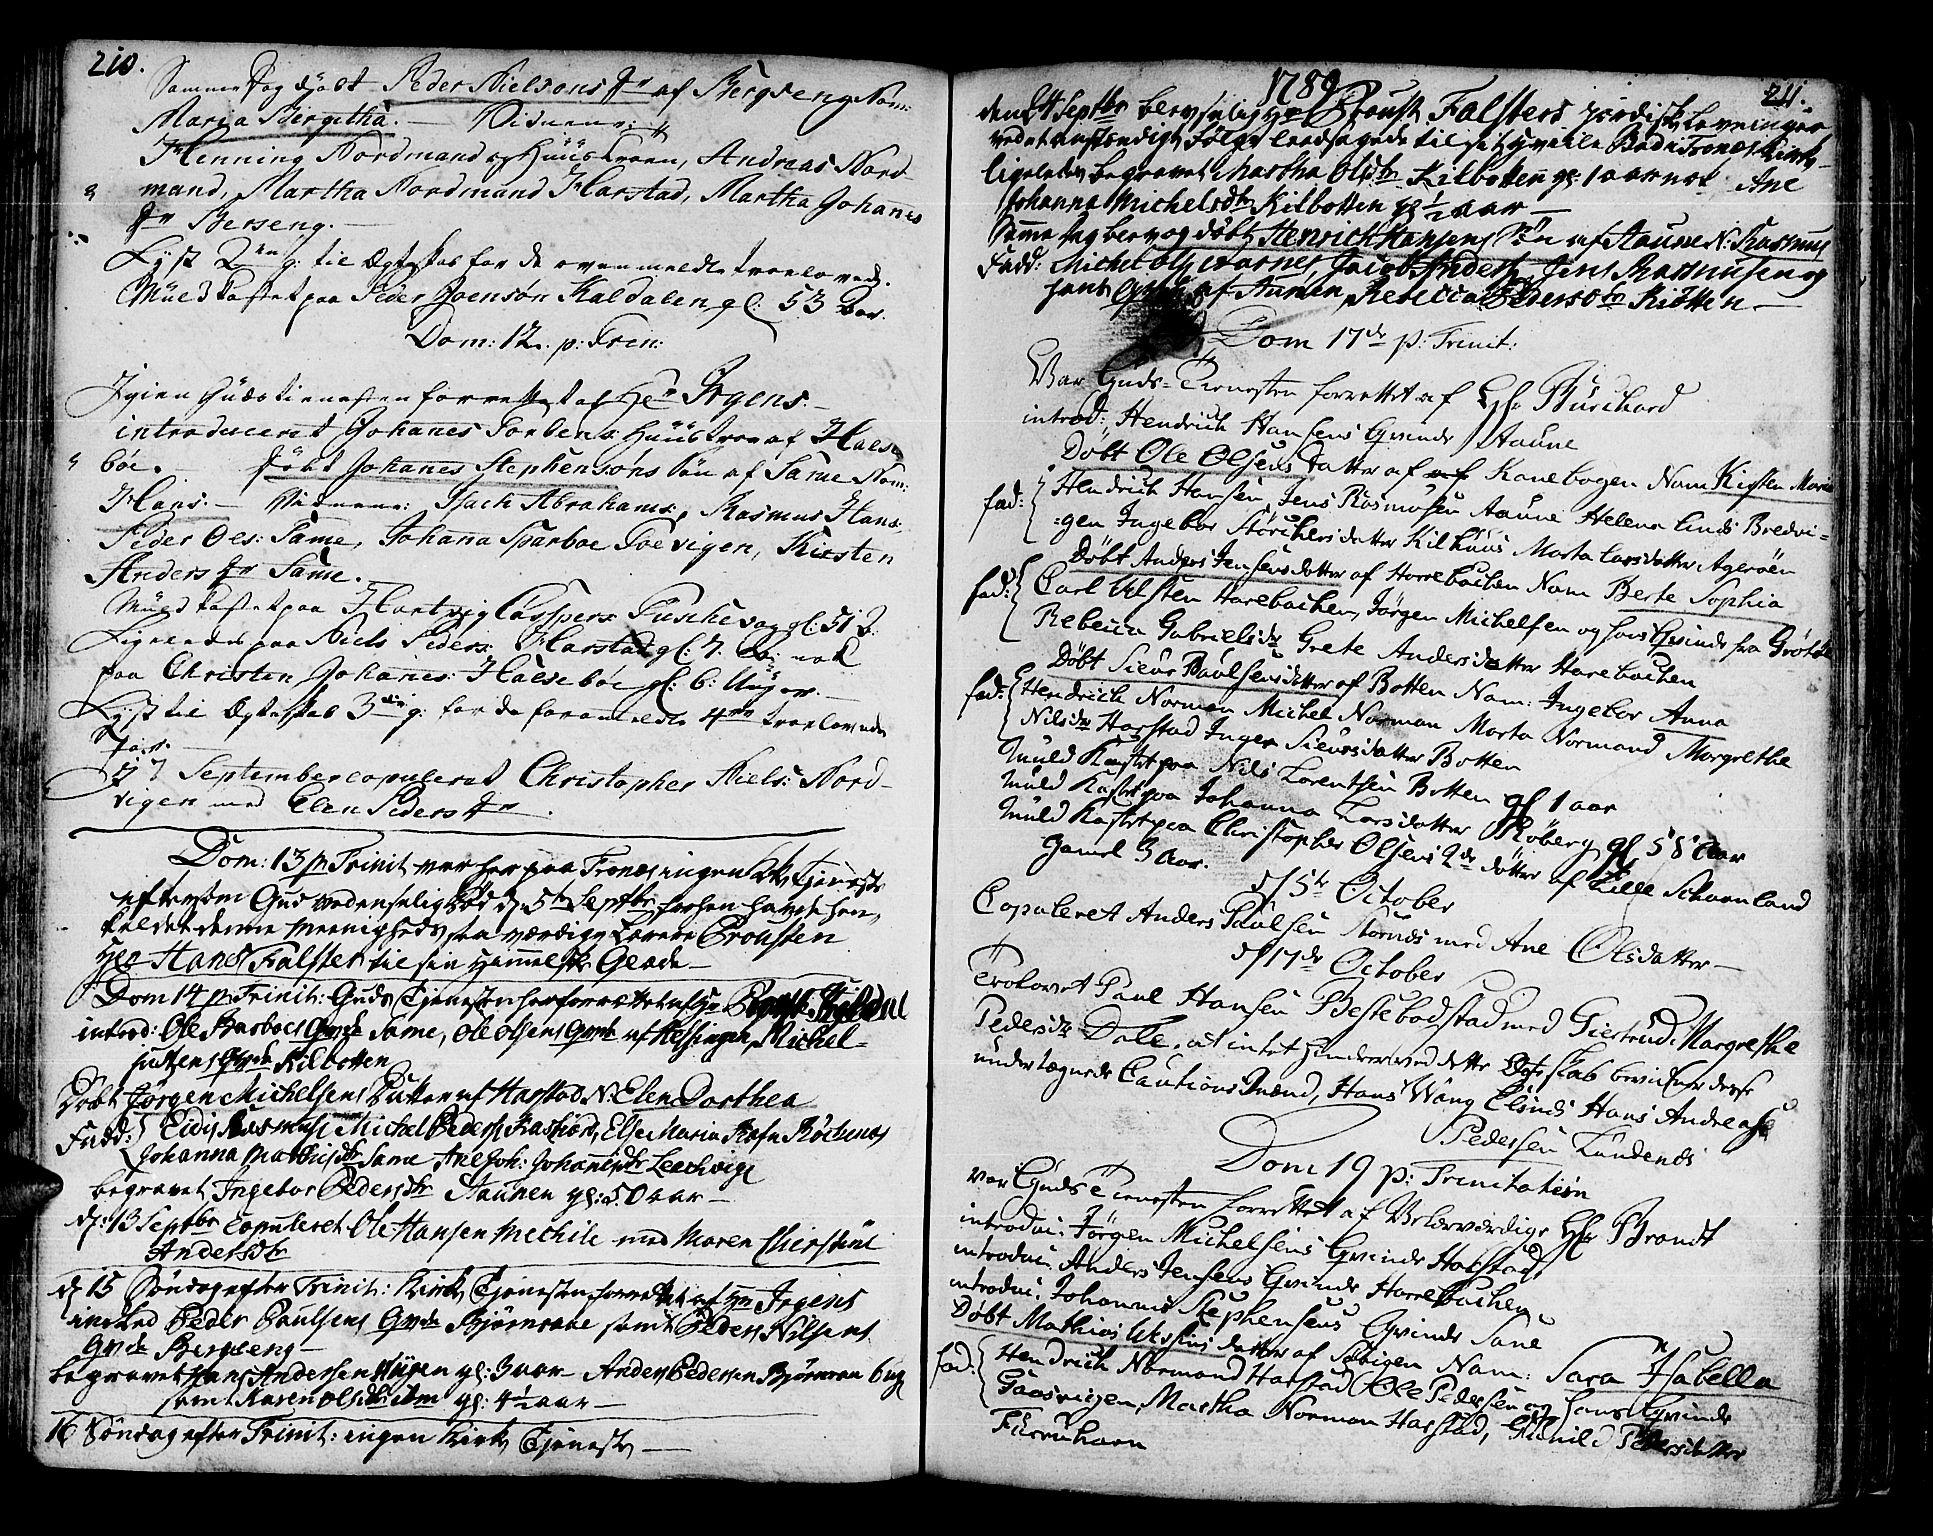 210.
Samme Dag døbt Peder Nielsøns Dr af Bergseng Nom:
Maria Birgitha. — Vidnerne:
Henning Nordmand og Hüüstroen, Andreas Nord
mand, Martha Nordmand Harstad, Martha Johanes
Dr Berseng. —
Lyst 2den g: til Ægteskab for de ovenmeldte troelovede.
Müld kastet paa Peder Joensøn Kaldalen gl: 53 Aar.
Dom: 12. p: Trin:
Igien Güdstienesten forrettet af Hr Irgens. —
introduceret Johanes Torlens: Hüüstroe af Halse
bøe. — Døbt Johanes Stephensøns Søn af Same Nom:
Hans. — Vidnerne: Isach Abrahams:, Rasmus Hans:
Peder Ols: Same, Johanna Sparboe Toevigen, Kirsten
Anders Dr Same.
Müld kastet paa Hartvig Caspers: gl: 51 A.
Ligeledes paa Niels Peders: Harstad gl: 7. nok
paa Christen Johanes: Halsebøe gl: 6: Uger. —
Lyst til Ægteskab 3die g: for de foranmeldte 4re troelovede
Par. —
d 7 September copuleret Christopher Niels: Nord-
vigen med Elen Peders Dr.
Dom: 13 p Trinit var her paa Tronæs ingen Kirke Tjeneste
eftersom Gud ved en salig Død d. 5te Septbr forhen havde hen,
kaldet denne Meenigheds saa værdige Lærere Provsten
Her Hans Falster til sin Himmelske Glæde —
Dom 14 p Trinit: Guds Tjenesten her forrettet af Hr
introd: Ole Barboes Qvde Same, Ole Olsens Qvde af Kessingen, Michel
Qvde Kilbotten
Døbt Jørgen Michelsens Datter af Harstad N: Elen Dorthea
Fadd: Michel Peders Kasfiord, Else Maria Røchenes
Johanna Mathisdtr Same Ane Joh: Johannesdtr Leechvig
begravet Ingebor Pedersdtr Aaunen gl: 50 aar —
d: 13 Septbr Copuleret Ole Hansen Mechile med Maren Chierstine
Andersdtr
d 15 Søndag efter Trinit: Kirke Tjenesten forrettet af Hr Irgens
inleed Peder Paulsens Qvde Bjørnraae samt Peder Nilsens
Qvde Bergseng —
begravet Hans Andersen gl: 3 aar — Anders Pedersen Bjørnraa 6 ug
samt Karen Olsdtr gl: 4½ aar —
16 Søndag efter Trinit: ingen Kirke Tjeneste —
1789
211.
den 24 Septbr blev salig Hr Provst Falsters Jordiske Levninger
ved et anstendigt Følge ledsagede til sit Hvile Tronæs Kirke
ligeledes begravet Martha Olsdtr Kilbotten gl: 1 aar nok Ane
Johanna Michelsdtr Kilbotten gl ½ aar —
Samme dag blev og døbt Henrich Hansens Søn af Aaune N: Rasmus
Fadd: Michel Jacob Anders Jens Rasmusen og
hans Qvde af Aunen, Rebecca Pedersdtr Kiøtten —
Dom 17de p: Trinit:
Var Guds-Tienesten forrettet af Hr Burchard
introd: Hendrich Hansens Qvinde Aaune
Døbt Ole Olsens Datter af Kanebogen Nam Kirsten Maria
fad: Hendrich Hansen, Jens Rosmusen Aaune Helena Linds Bredvi=
=gen Ingebor Størchersdatter Kilhüüs Marta Larsdatter Ageröen
Døbt Anders Jensens datter af Harrebachen Nam Berte Sophia
fad: Carl Harebachen, Jørgen Michelsen og hans Qvinde fra Grøtøe
Rebecca Gabrielsdr Grete Andersdatter Harebachen
Døbt Siver Paulsens datter af Botten Nam: Ingebor Anna
fad: Hendrich Norman Michel Norman Marta Normand Margrethe
Nilsdr Harstad Inger Sieversdatter Botten
Muuld Kastet paa Nils Lorentsen Botten gl 1 aar
Muuld Kastet paa Johanna Larsdatter Röberg gl 58 Aar
Muuld Kastet paa Christopher Olsens 2de døtter af Lille Schaanland
Gamel 3 Aar.
d 5te October
Copuleret Anders Paulsen Stornæs med Ane Olsdatter —
d 17de October
Trolovet Paul Hansen Bestebodstad med Giertrud Margrethe
Pedersdr Dale, at intet hindrer ved dette Egteskab beviidner disse
undertegnede Cautions Mænd, Hans Wang Elsnes Hans Andreas
Pedersen Lundenes
Dom 19 p: Trinitatin
var Guds-Tienesten forrettet af Velærværdige Hr Brandt
introdui: Jørgen Michelsens Qvinde Harstad
introdui: Anders Jensens Qvinde Harrebachen
introdui: Johannes Stephensens Qvinde Same
Døbt Mathias datter af Nam: Sara Isabella
fad: Hendrich Normand Harstad Ole Pedersen og hans Qvinde
Gaasvigen, Martha Norman Harstad, Gunild Pedersdatter
Furruhavn